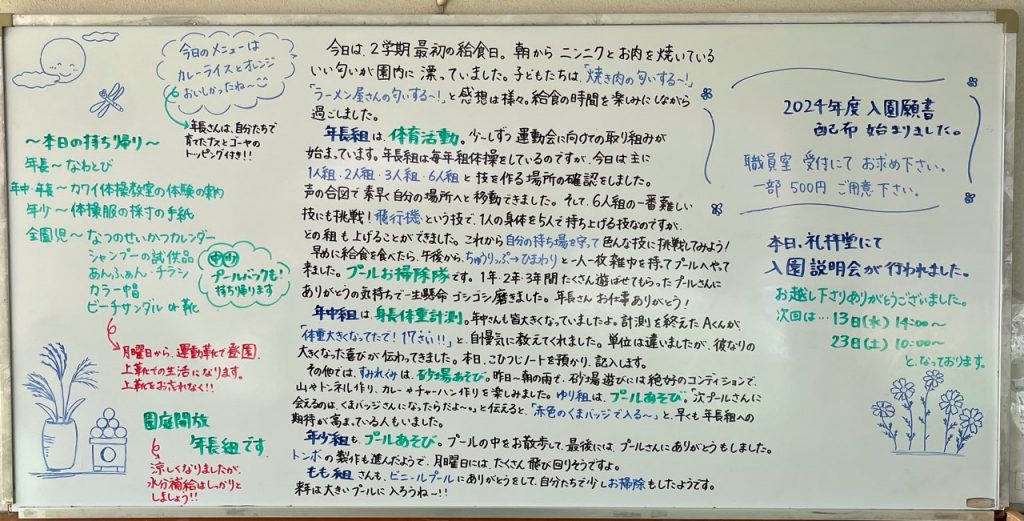 今日のメニューは
カレーライスとオレンジ
おいしかったね〜
年長さんは、自分たちで
育てたナスとゴーヤの
トッピング付き!!
〜本日の持ち帰り〜
年長〜なわとび
年中・年長〜カワイ体操教室の体験の案内
年少〜体操服の採寸の手紙
全園児〜なつのせいかつカレンダー
シャンプーの試供品
あんふぁん・チラシ
カラー帽
ビーチサンダル or 靴
プールバックも!
持ち帰ります
月曜日から、運動靴で登園、
上靴での生活になります。
上靴をお忘れなく!!
園庭開放
年長組です
涼しくなりましたが、
水分補給はしっかりと
しましょう!!
今日は、2学期最初の給食日。朝からニンニクとお肉を焼いている
いい匂いが園内に漂っていました。子どもたちは、「焼き肉の匂いする〜!」
「ラーメン屋さんの匂いする〜!」と感想は様々。給食の時間を楽しみにしながら
過ごしました。
年長組は、体育活動。少しずつ運動会に向けての取り組みが
始まっています。年長組は毎年組体操をしているのですが、今日は主に
1人組・2人組・3人組・6人組と技を作る場所の確認をしました。
声の合図で素早く自分の場所へと移動できました。そして、6人組の一番難しい
技にも挑戦!飛行機という技で、1人の身体を5人で持ち上げる技なのですが、
どの組も上げることができました。これから自分の持ち場を守って色んな技に挑戦してみよう!
早めに給食を食べたら、午後から、ちゅうりっぷ→ひまわりと一人一枚雑巾を持ってプールへやって
来ました。プールお掃除隊です。1年・2年・3年間たくさん遊ばせてもらったプールさんに
ありがとうの気持ちで一生懸命ゴシゴシ磨きました。年長さんお仕事ありがとう!
年中組は、身長体重計測。年中さんも皆大きくなっていましたよ。計測を終えたAくんが、
「体重大きくなってたで!17さい!!」と、自慢気に教えてくれました。単位は違いましたが、彼なりの
大きくなった喜びが伝わってきました。本日、こひつじノートを預かり、記入します。
その他では、すみれぐみは、砂場あそび。昨日〜朝の雨で、砂場遊びには絶好のコンディションで、
山やトンネル作り、カレーやチャーハン作りを楽しみました。ゆり組は、プールあそび。「次プールさんに
会えるのは、くまバッジさんになったらだよ〜。」と伝えると、「赤色のくまバッジで入る〜」と、早くも年長組への
期待が高まっている人もいました。
年少組も、プールあそび。プールの中をお散歩して、最後には、プールさんにありがとうもしました。
トンボの製作も進んだようで、月曜日には、たくさん飛び回りそうですよ。
もも組さんも、ビニールプールにありがとうをして、自分たちで少しお掃除もしたようです。
来年は大きいプールに入ろうねー!!
2024年度 入園願書
配布 始まりました。
職員室 受付にて お求め下さい。
一部 500円 ご用意下さい。
本日、礼拝堂にて
入園説明会が行われました。
お越し下さりありがとうございました。
次回は… 13日(水) 14:00〜
23日(土) 10:00〜
と、なっております。